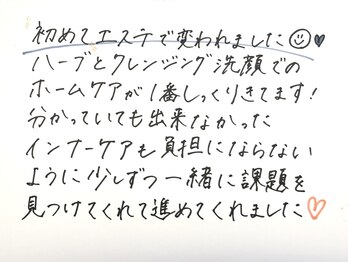 初めてエステで変われました☺♥
ハーブとクレンジング洗顔での
ホームケアが1番しっくりきてます!
分かっていても出来なかった
インナーケアも負担にならない
ように少しずつ一緒に課題を
見つけてくれて進めてくれました♡